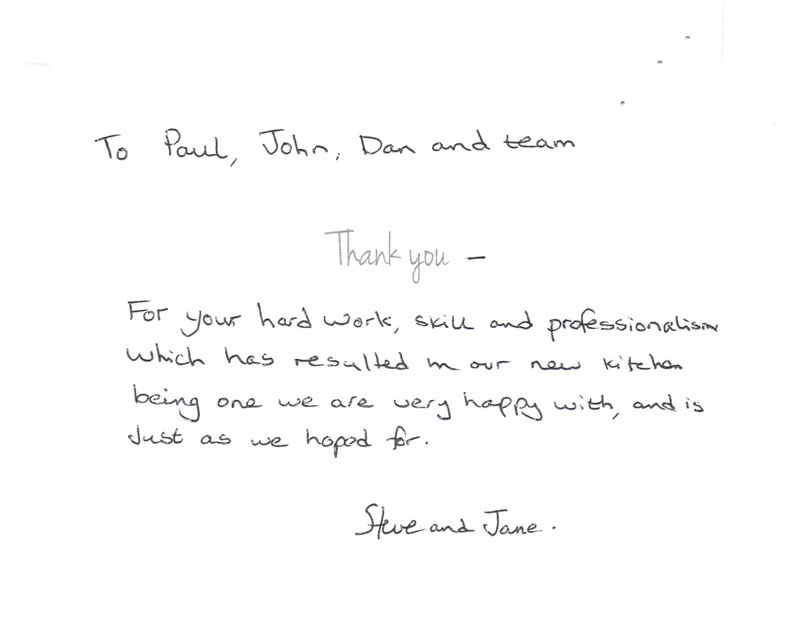 To Paul, John, Dan and team
Thank you –
For your hard work, skill and professionalism
which has resulted in our new kitchen
being one we are very happy with, and is
just as we hoped for.
Steve and Jane.